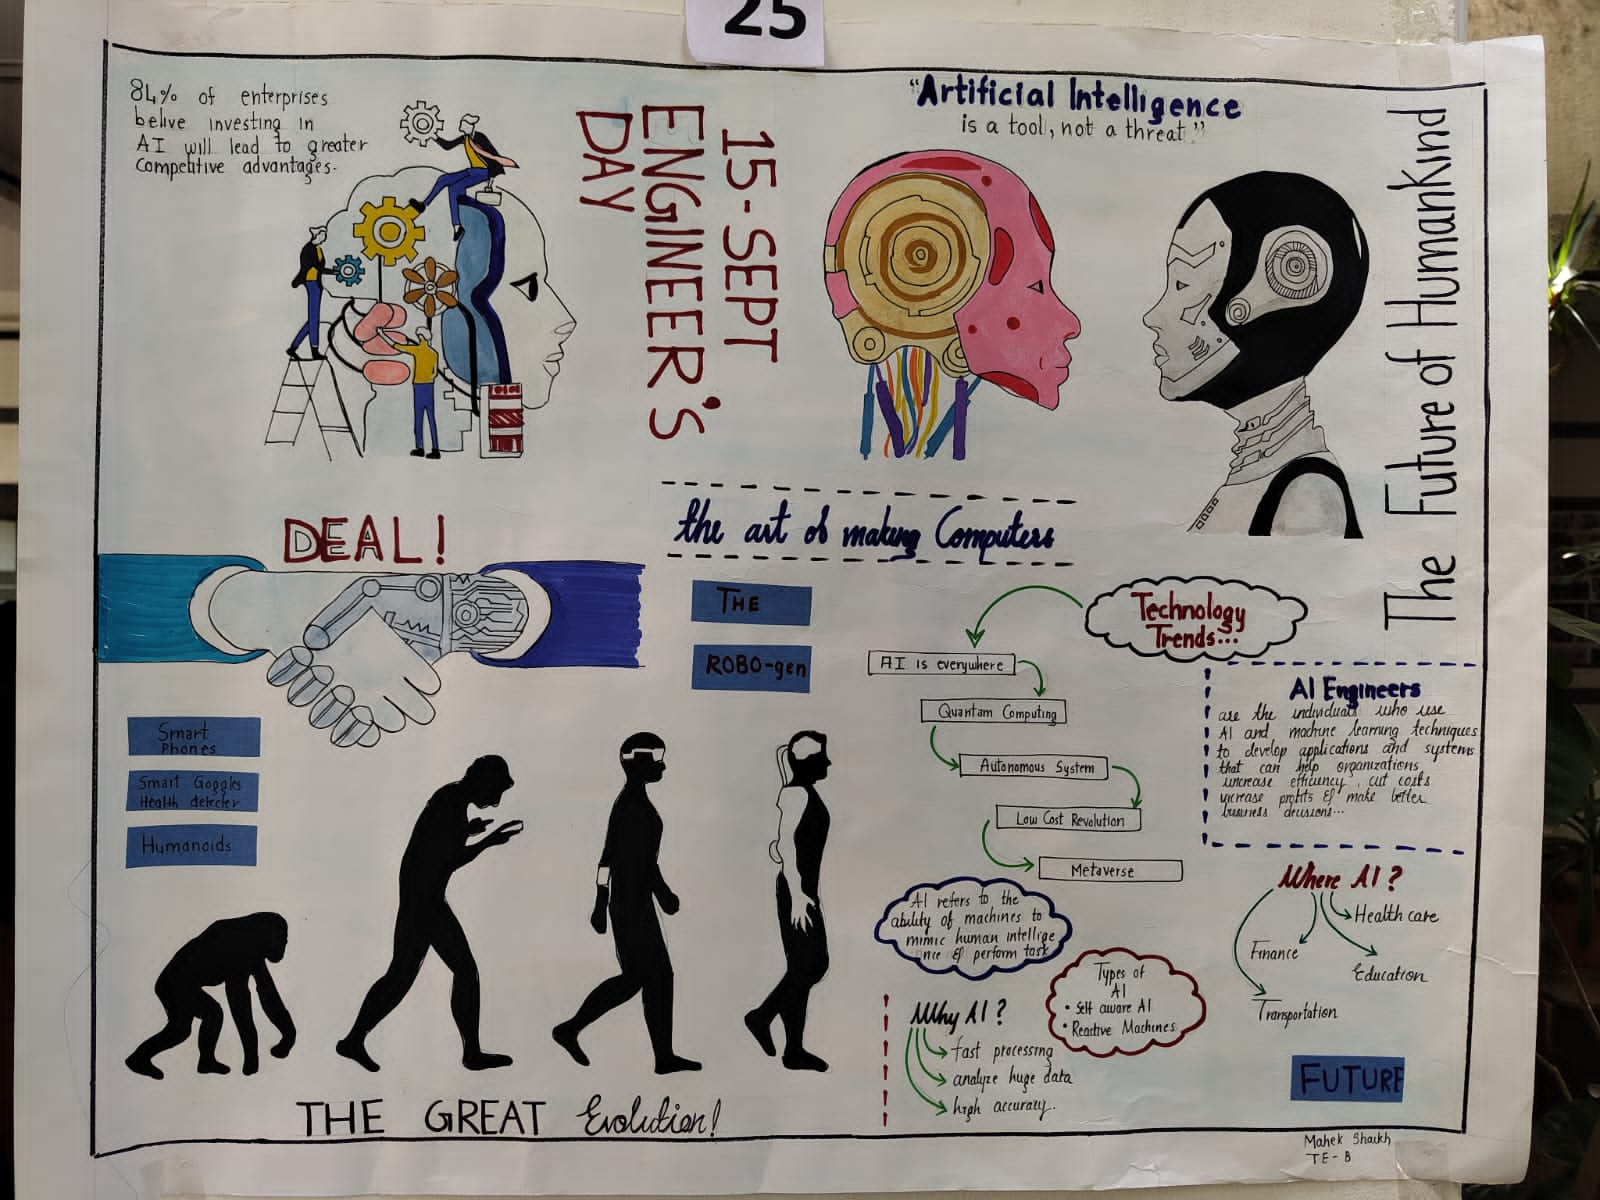 25
84% of enterprises
belive investing in
AI will lead to greater
Competitive advantages.
15-SEPT
ENGINEER'S
DAY
"Artificial Intelligence
is a tool, not a threat"
The Future of Humankind
DEAL!
the art of making Computers
THE
ROBO-gen
Technology
Trends...
AI is everywhere
Quantam Computing
Autonomous System
Low Cost Revolution
Metaverse
AI Engineers
are the individuals who use
AI and machine learning techniques
to develop applications and systems
that can help organizations
increase efficiency, cut costs
increase profits & make better
business decisions...
Smart
Phones
Smart Goggles
Health detecter
Humanoids
AI refers to the
ability of machines to
mimic human intellige
nce & perform task
Types of
AI
• Self aware AI
• Reactive Machines
Where AI?
Health care
Finance
Education
Transportation
Why AI?
fast processing
analyze huge data
high accuracy.
FUTURE
THE GREAT Evolution!
Mahek Shaikh
TE-B